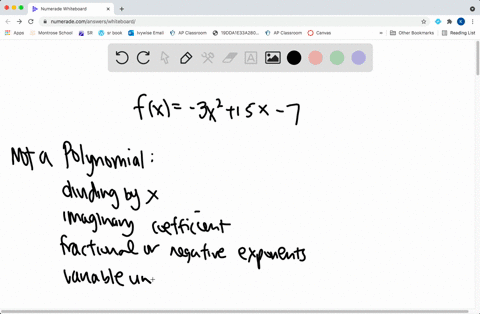 Numerade Whiteboard
numerade.com/answers/whiteboard/
Apps Montrose School SR ei book Ivywise Email AP Classroom AP Classroom Canvas » Other Bookmarks Reading List
f(x) = -3x² + 15x - 7
Not a Polynomial:
dividing by x
imaginary coefficient
fractional or negative exponents
variable un